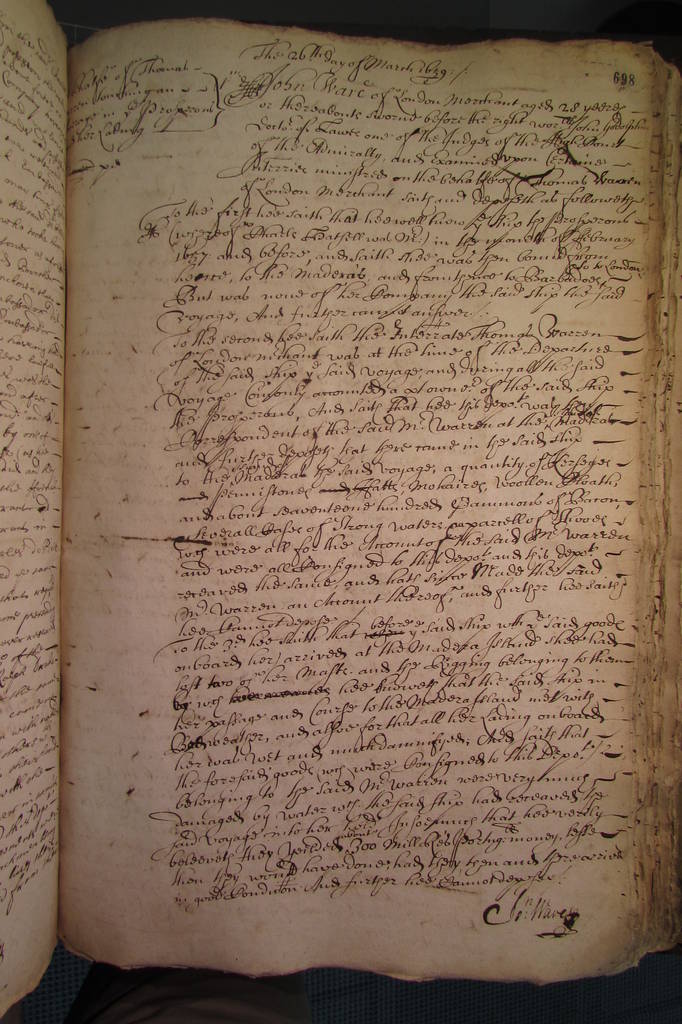 The 26th day of March 1659.
698
of Thomas
in ye Prosperous
her Lading
John Ware of London Merchant aged 28 yeeres
or thereabouts sworne before the right worll John Godolphin
Doctor of Lawes one of the Judges of the high Court
of the Admiralty, and examined upon certaine
Interries ministred on the behalfe of Thomas Warren
of London Merchant saith and deposeth as followeth
To the first hee saith that hee well knew ye ship the Prosperous
(whereof Hatsell was Mr) in the moneth of February
1657 and before, and saith shee was then bound from
hence, to the Maderas, and from thence to Barbados so to London
But was none of her Company the said ship the said
voyage, And further cannot answer.
To the second hee saith the Interrate Thomas Warren
of London merchant was at the time of the Departure
of the said ship ye said voyage, and during all the said
voyage Comonly accounted a pt owner of the said ship
the Prosperous, And saith that hee this depot was the
Correspondent of the said Mr Warren at the Maderas
and further deposeth that there came in the said ship
to the Maderas the said voyage, a quantity of Kerseyes
Pennistones Hatts, Mohaires, Woollen Cloath,
and about seaventeene hundred Gammons of Bacon,
severall Cases of Strong waters, a parcell of Shooes
wch were all for the Account of the said Mr Warren
and were all Consigned to this depot and this depot
receaved the same, and hath since Made the said
Mr Warren an Account thereof, and further hee saith
hee Cannot depose.
To the 3d hee saith that before ye said ship wth ye said goods
onboard her, arrived at the Madera Island shee had
lost two of her Masts and the Rigging belonging to them
by wch hee knoweth that the said ship in
her passage and Course to the Madera Island met with
Bad weather, and alsoe for that all her Lading onboard
her was wet and much damnifyed; And saith that
the foresaid goods wch were Consigned to this Depot
belonging to the said Mr Warren were very much
damaged by water wch the said ship had receaved the
said voyage into her Insoemuch that hee verily
beleeveth they yeilded about 300 Mill Rees Portug money, lesse
then they would have done, had they then and there arrived
in good Condition And further hee Cannot depose.
Jn: Ware